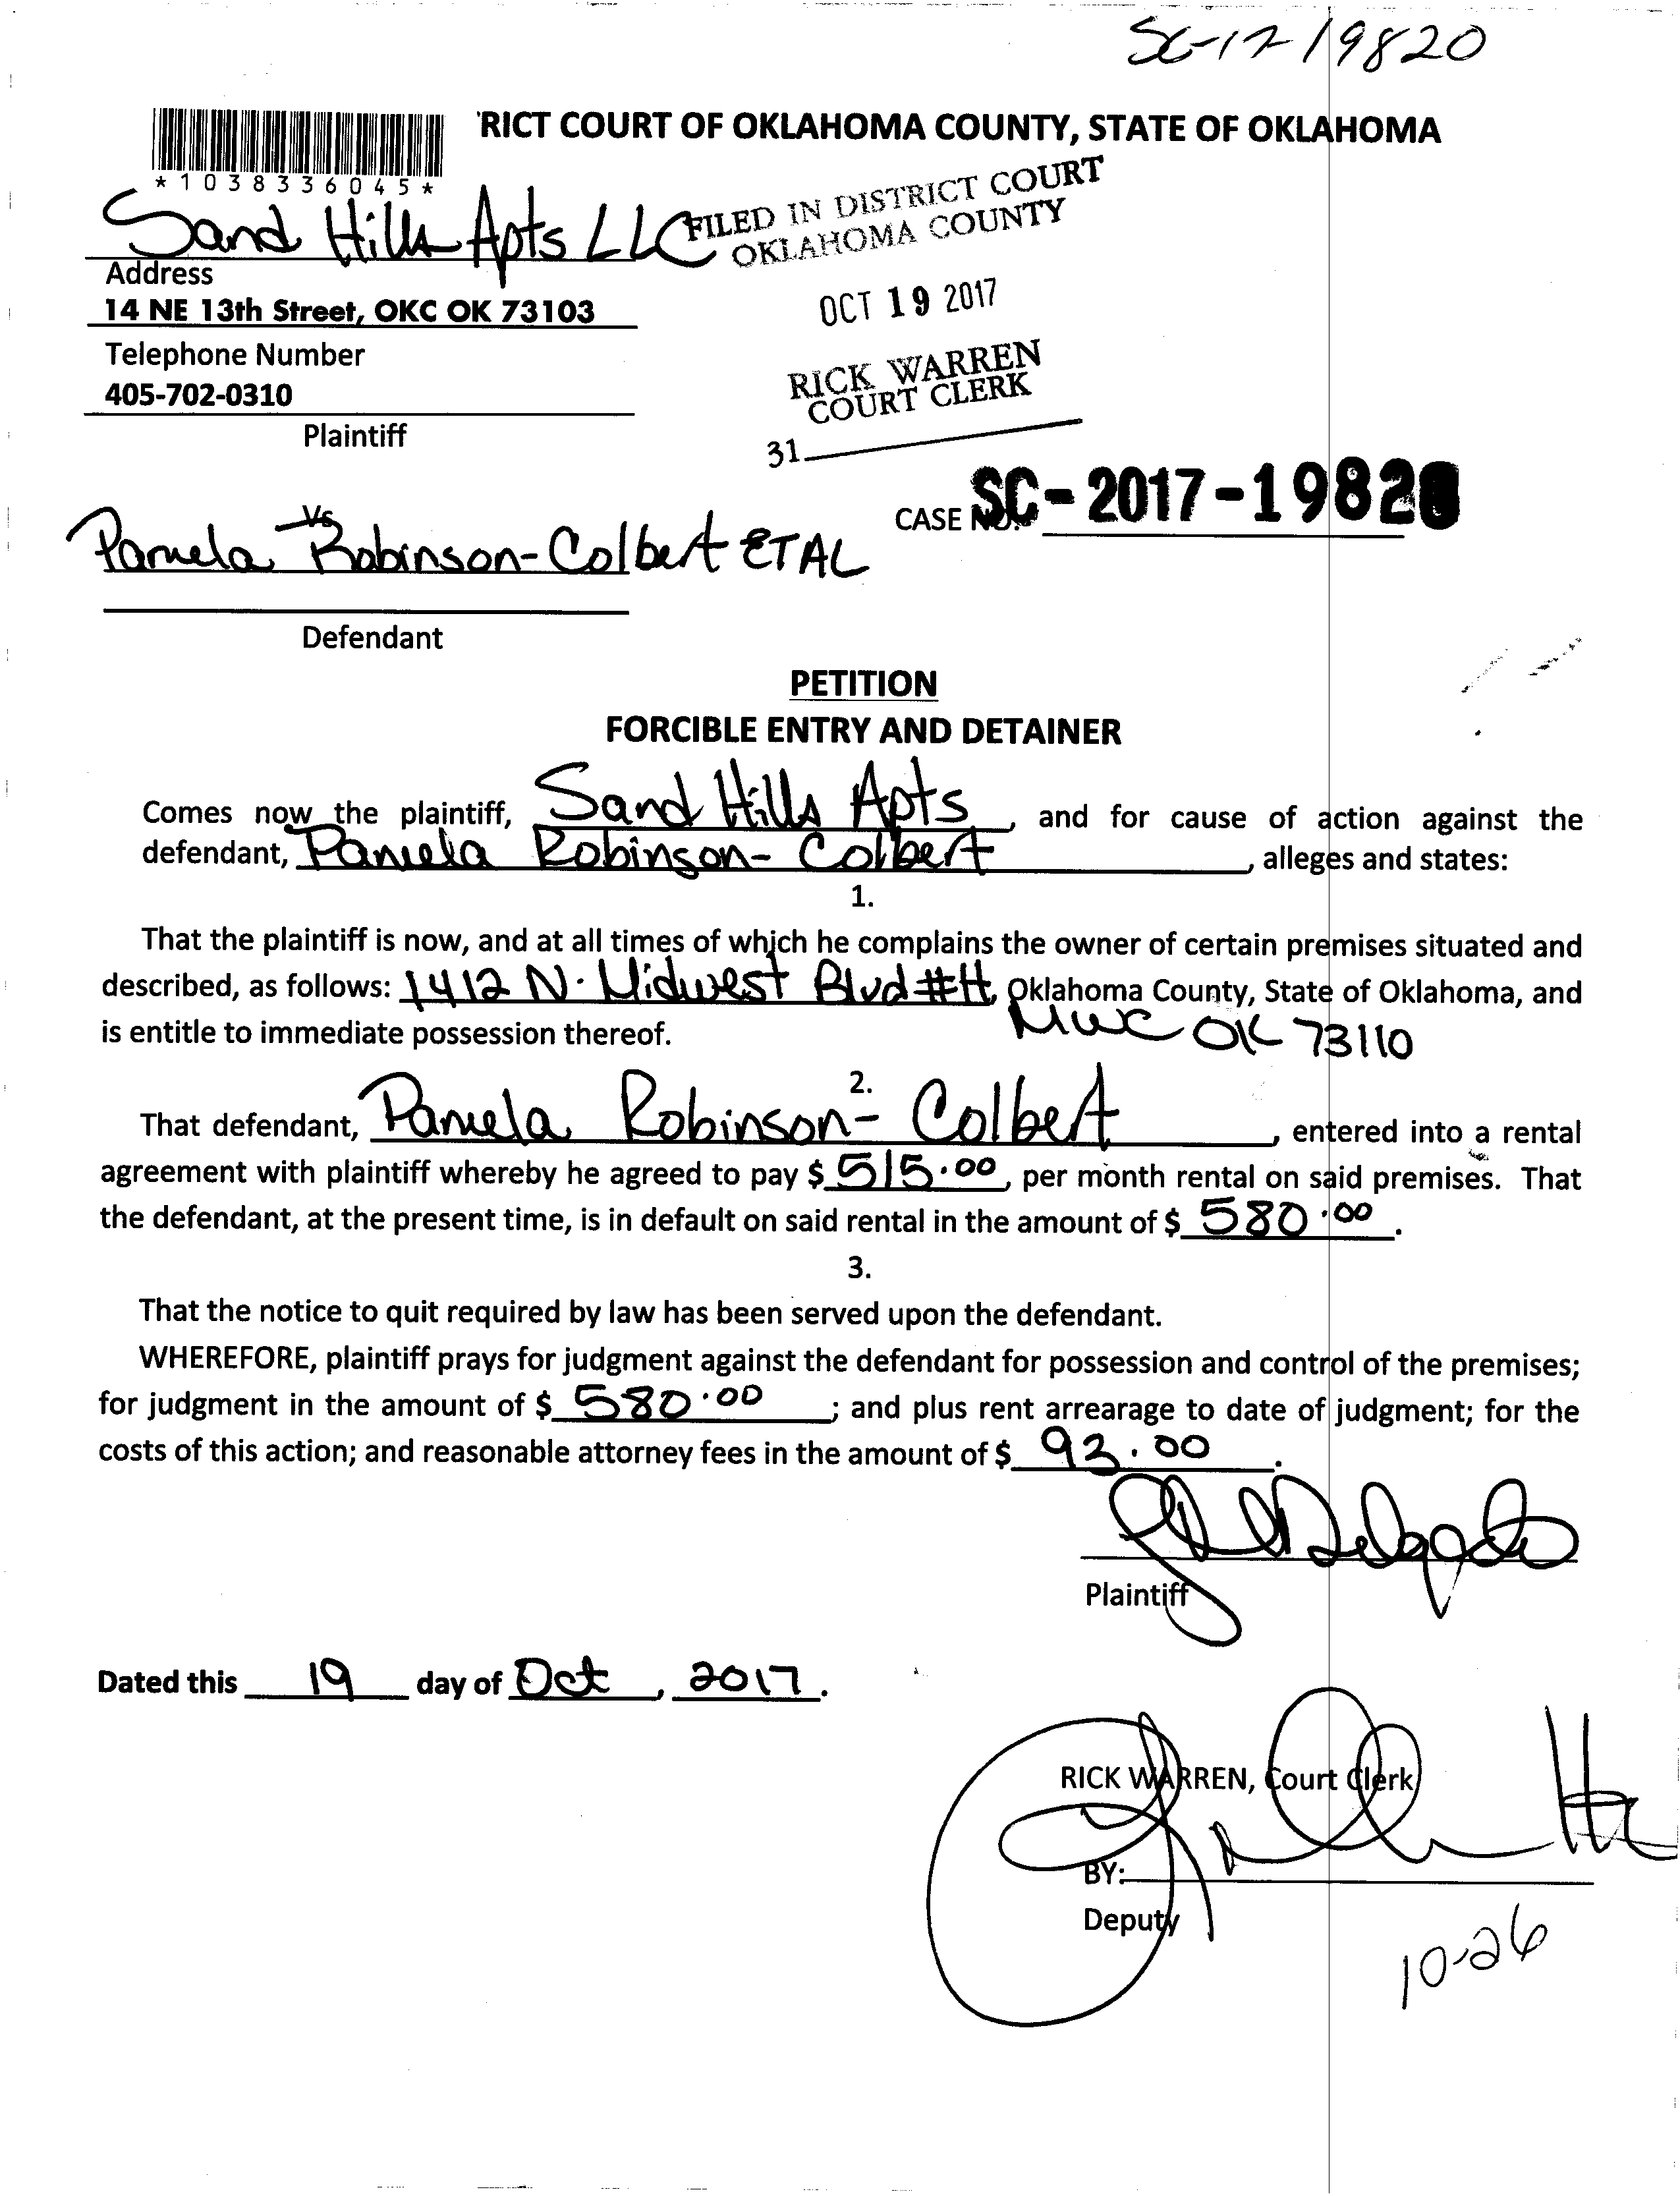 SC-17-19820
'RICT COURT OF OKLAHOMA COUNTY, STATE OF OKLAHOMA
*1038336045*
Sand Hills Apts LLC
FILED IN DISTRICT COURT
OKLAHOMA COUNTY
Address
14 NE 13th Street, OKC OK 73103
OCT 19 2017
Telephone Number
405-702-0310
RICK WARREN
COURT CLERK
Plaintiff
31
CASE NO. SC-2017-19820
Vs
Pamela Robinson-Colbert ETAL
Defendant
PETITION
FORCIBLE ENTRY AND DETAINER
Comes now the plaintiff, Sand Hills Apts, and for cause of action against the
defendant, Pamela Robinson-Colbert, alleges and states:
1.
That the plaintiff is now, and at all times of which he complains the owner of certain premises situated and
described, as follows: 1412 N. Midwest Blvd #H, Oklahoma County, State of Oklahoma, and
is entitle to immediate possession thereof. MWC OK 73110
2.
That defendant, Pamela Robinson-Colbert, entered into a rental
agreement with plaintiff whereby he agreed to pay $ 515.00, per month rental on said premises. That
the defendant, at the present time, is in default on said rental in the amount of $ 580.00.
3.
That the notice to quit required by law has been served upon the defendant.
WHEREFORE, plaintiff prays for judgment against the defendant for possession and control of the premises;
for judgment in the amount of $ 580.00; and plus rent arrearage to date of judgment; for the
costs of this action; and reasonable attorney fees in the amount of $ 93.00.
Delgado
Plaintiff
Dated this 19 day of Oct, 2017.
RICK WARREN, Court Clerk
BY:
Deputy
10-26